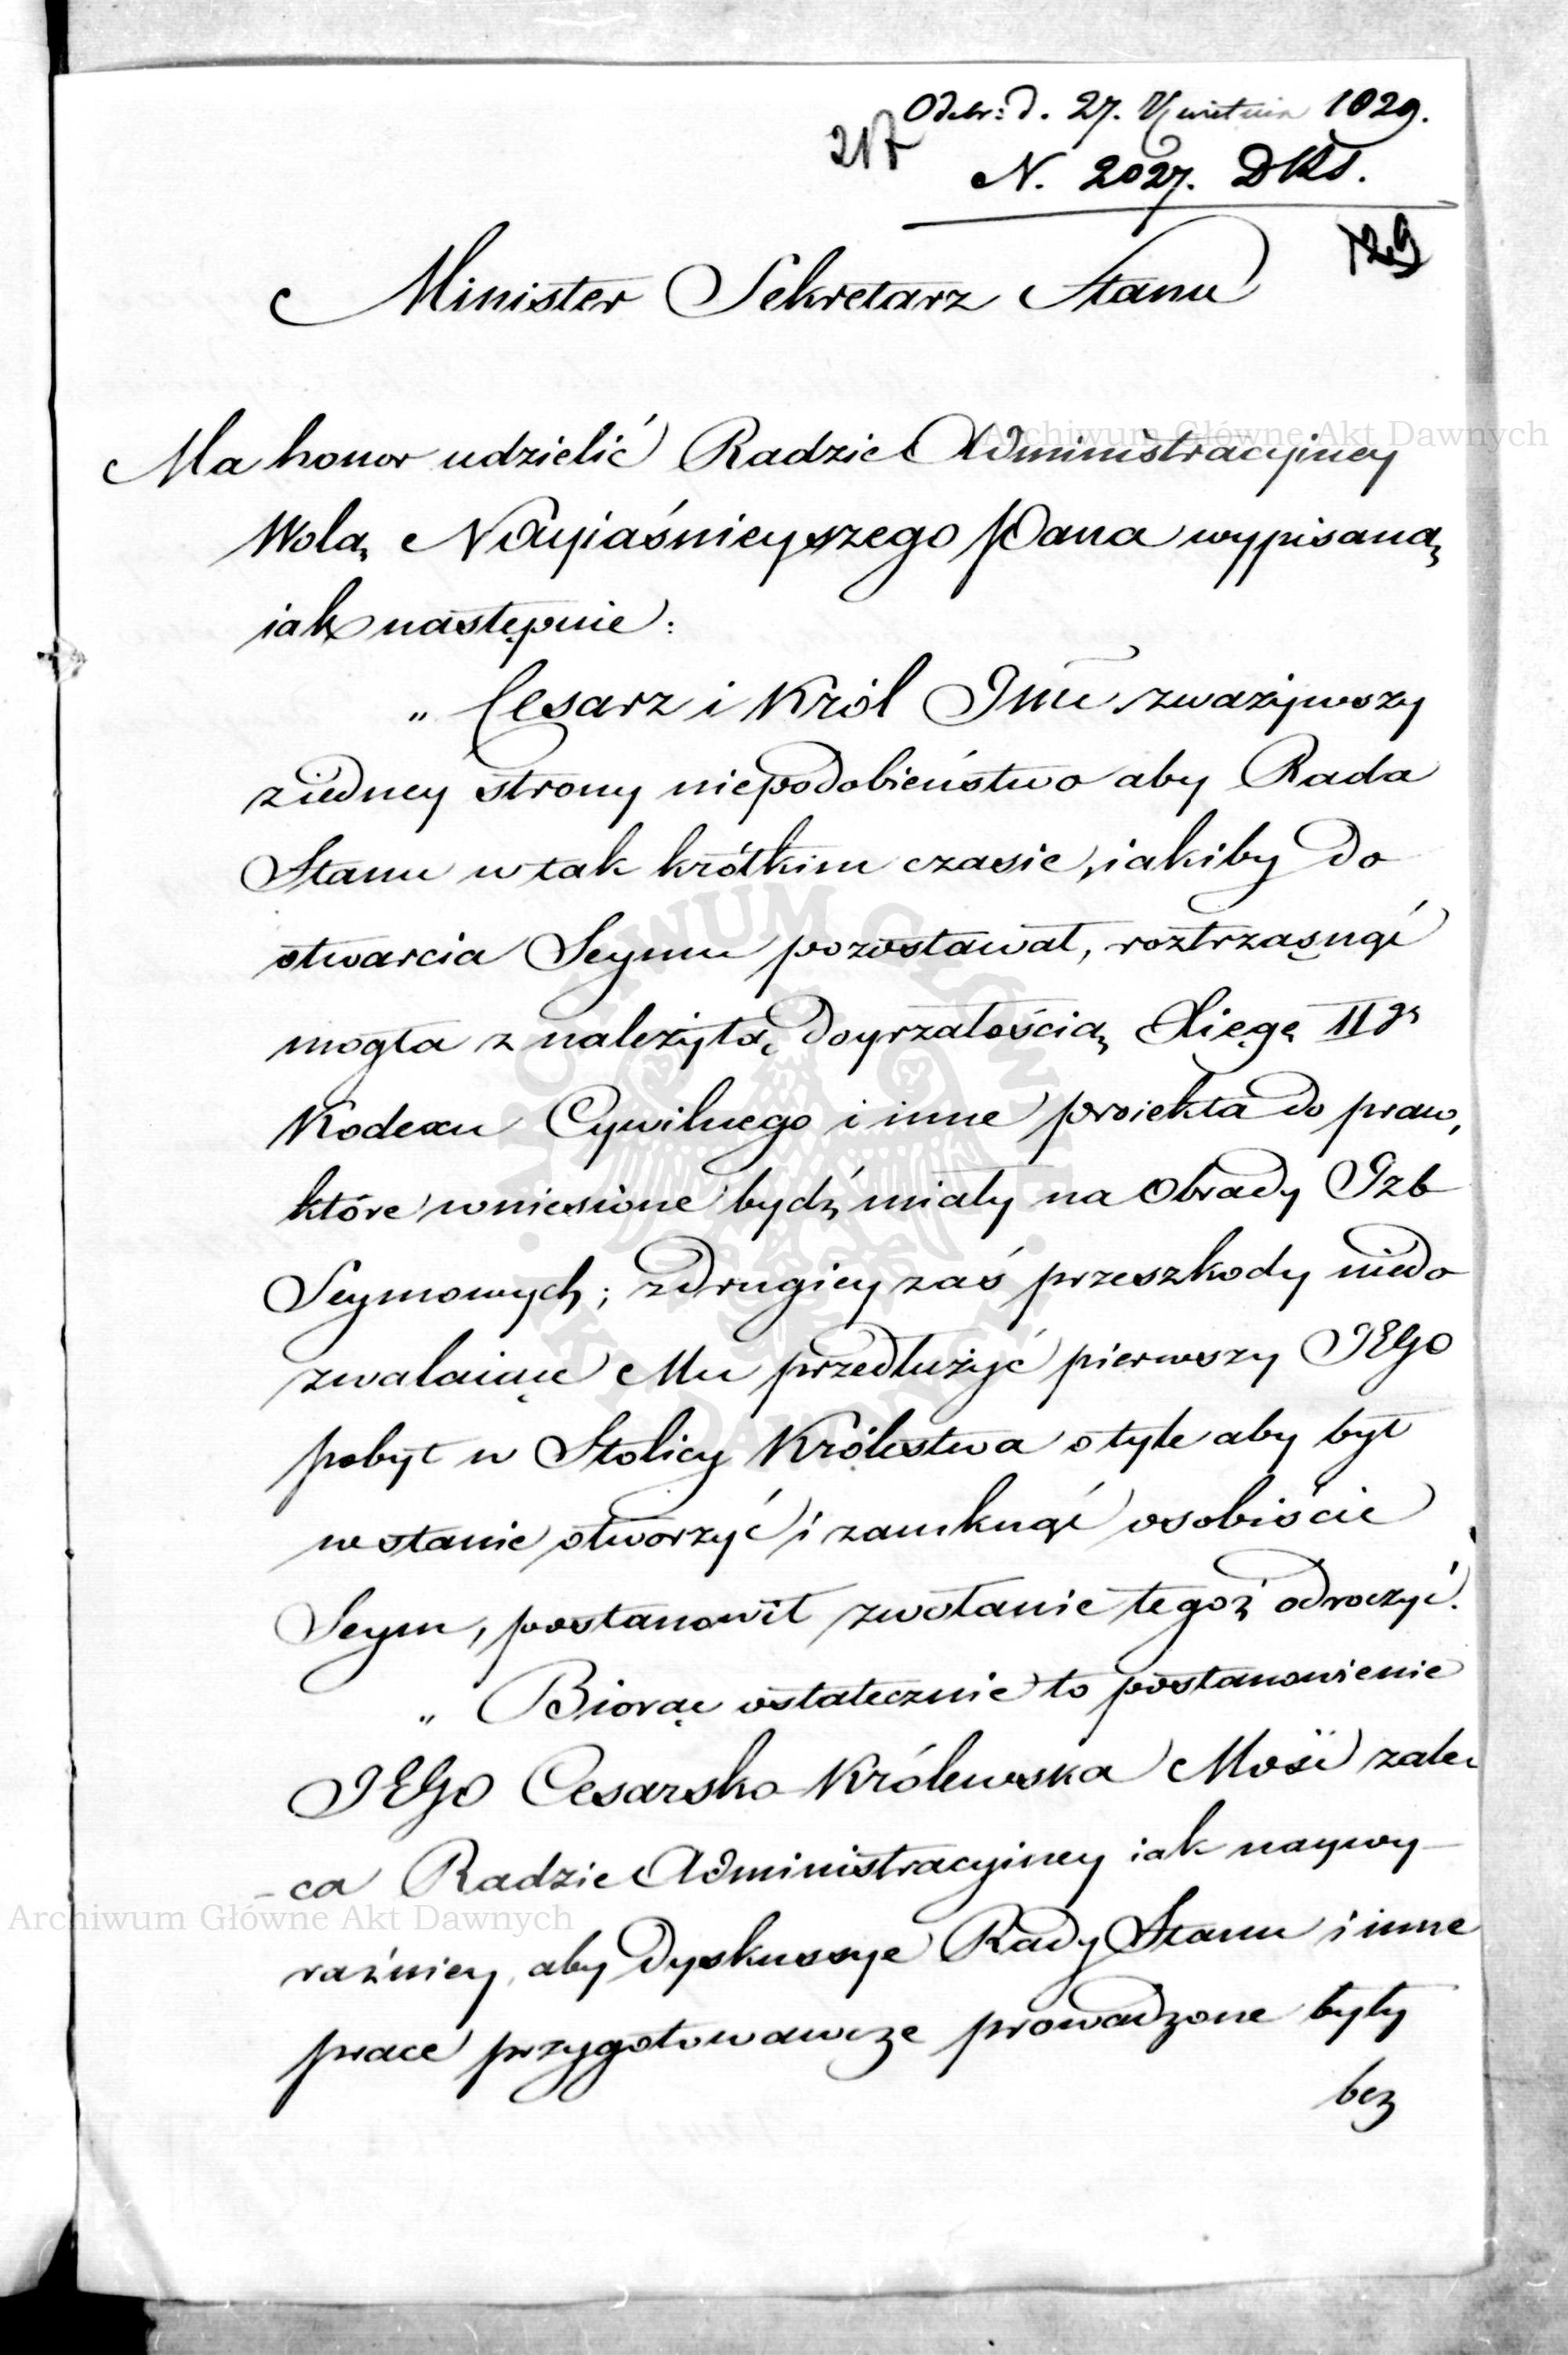 Odebr: d. 27. Kwietnia 1829.
217
N. 2027. DKS.
129
Minister Sekretarz Stanu
Archiwum Główne Akt Dawnych
Ma honor udzielić Radzie Administracyiney
Wolą Nayiaśnieyszego Pana wypisaną
iak następnie:
„ Cesarz i Król Jmć zważywszy
z iedney strony niepodobieństwo aby Rada
Stanu w tak krótkim czasie, iakiby do
otwarcia Seymu pozostawał, roztrząsnąć
mogła z należytą doyrzałością Xięgę IIgą
Kodexu Cywilnego i inne proiekta do praw,
które wniesione bydź miały na Obrady Izb
Seymowych; z drugiey zaś przeszkody niedo
zwalaiące Mu przedłużyć pierwszy JEgo
pobyt w Stolicy Królestwa o tyle aby był
w stanie otworzyć i zamknąć osobiście
Seym, postanowił zwołanie tegoż odroczyć.
„ Biorąc ostatecznie to postanowienie
JEgo Cesarsko Królewska Mość zale-
-ca Radzie Administracyiney iak naywy-
Archiwum Główne Akt Dawnych
raźniey, aby dyskussye Rady Stanu i inne
prace przygotowawcze prowadzone były
bez
ARCHIWUM GŁÓWNE
AKT DAWNYCH